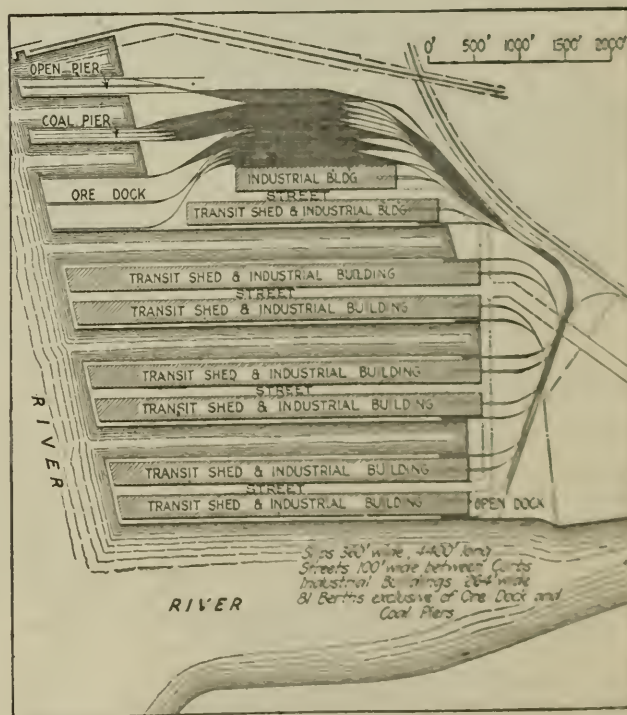 0' 500' 1000' 1500' 2000'
OPEN PIER
COAL PIER
ORE DOCK
INDUSTRIAL BLDG
STREET
TRANSIT SHED & INDUSTRIAL BLDG
TRANSIT SHED & INDUSTRIAL BUILDING
STREET
TRANSIT SHED & INDUSTRIAL BUILDING
TRANSIT SHED & INDUSTRIAL BUILDING
STREET
TRANSIT SHED & INDUSTRIAL BUILDING
TRANSIT SHED & INDUSTRIAL BUILDING
STREET
TRANSIT SHED & INDUSTRIAL BUILDING
OPEN DOCK
RIVER
Slips 360' wide, 4400' long
Streets 100' wide between Curbs
Industrial Buildings 264' wide
81 Berths exclusive of Ore Dock and
Coal Piers
RIVER